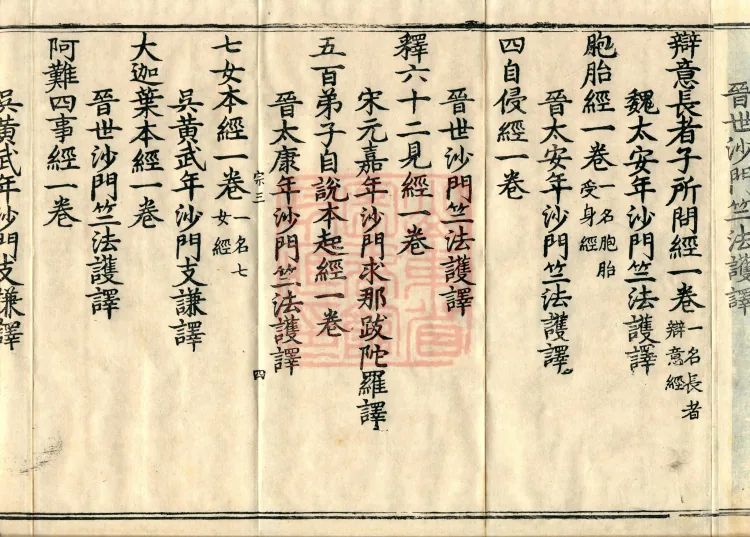 晉世沙門竺法護譯
辯意長者子所問經一卷 一名長者辯意經
魏太安年沙門竺法護譯
胞胎經一卷 一名胞胎受身經
晉太安年沙門竺法護譯
四自侵經一卷
晉世沙門竺法護譯
釋六十二見經一卷
宋元嘉年沙門求那跋陀羅譯
五百弟子自說本起經一卷
晉太康年沙門竺法護譯
宗三 四
七女本經一卷 一名七女經
吳黃武年沙門支謙譯
大迦葉本經一卷
晉世沙門竺法護譯
阿難四事經一卷
吳黃武年沙門支謙譯